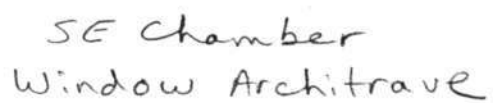 SE Chamber
Window Architrave